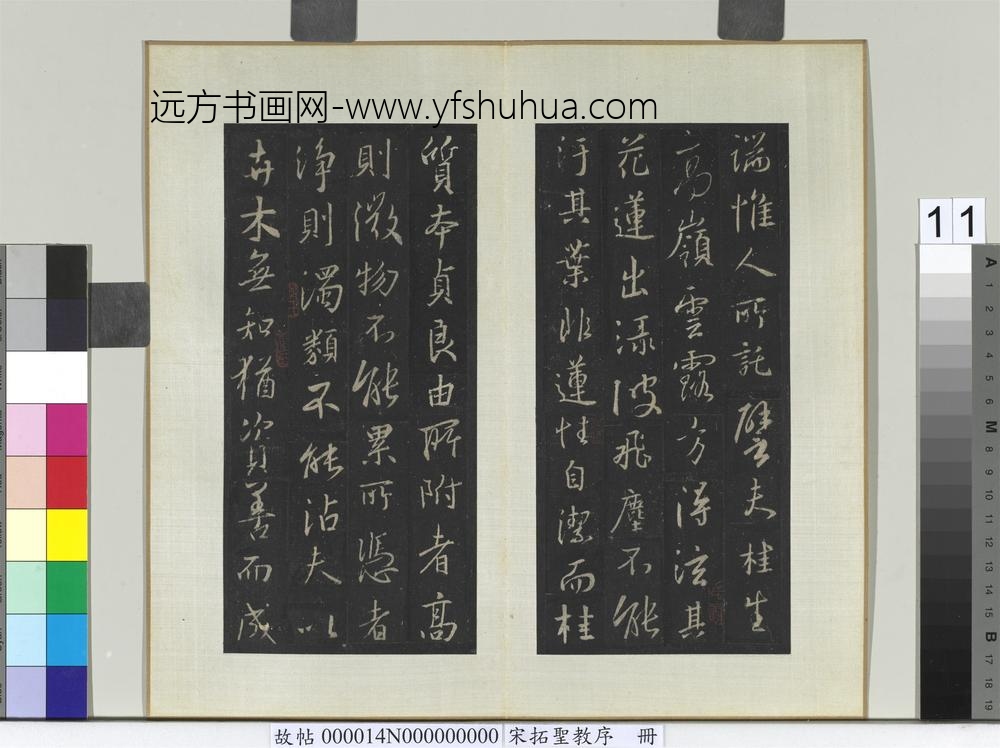 远方书画网-www.yfshuhua.com
端惟人所託譬夫桂生
高嶺雲露方得泫其
花蓮出淥波飛塵不能
汙其葉非蓮性自潔而桂
質本貞良由所附者高
則微物不能累所憑者
淨則濁類不能沾夫以
卉木無知猶資善而成
11
A
1
2
3
4
5
6
M
8
9
10
11
12
13
14
15
B
17
18
19
故帖 000014N000000000 宋拓聖教序 冊